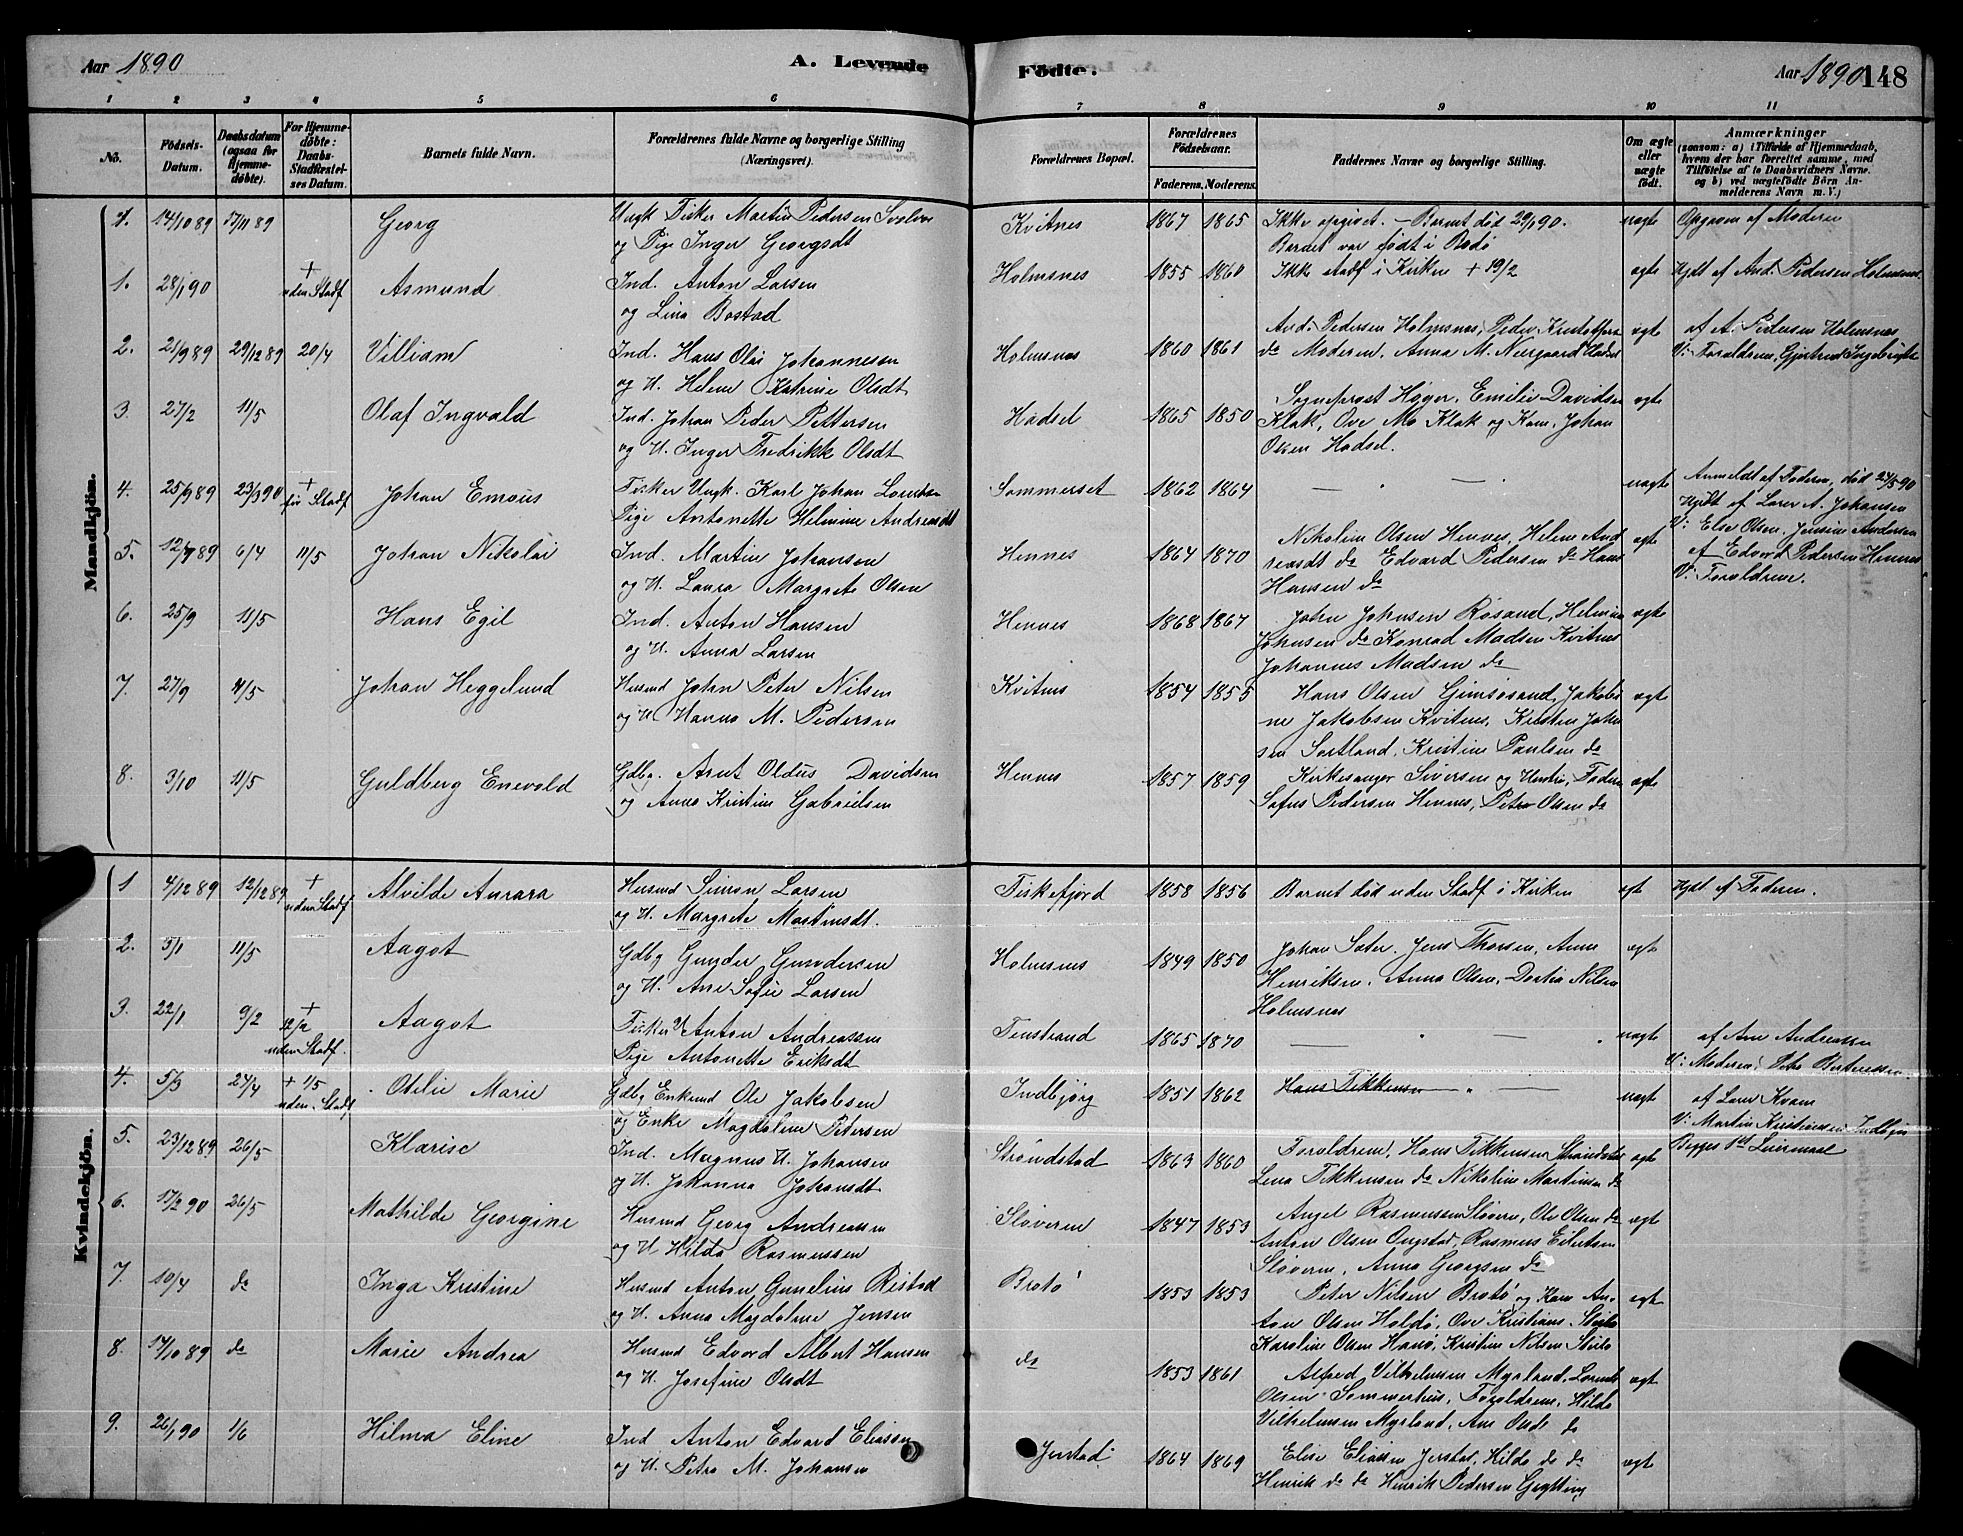 Aar 1890
A. Levende
Fødte.
Aar 1890
148
1 2 3 4 5 6 7 8 9 10 11
No.
Fødsels-Datum.
Daabsdatum (ogsaa for Hjemmedøbte).
For Hjemmedøbte: Daabs-Stadfæstelses Datum.
Barnets fulde Navn.
Forældrenes fulde Navne og borgerlige Stilling (Næringsvei).
Forældrenes Bopæl.
Forældrenes Fødselsaar.
Faderens. Moderens.
Faddernes Navne og borgerlige Stilling.
Om ægte eller uægte født.
Anmærkninger (saasom: a) i Tilfælde af Hjemmedaab, hvem der har forrettet samme, med Tilføielse af to Daabsvidners Navne. og b) ved uægtefødte Børn Anmelderens Navn m. V.)
Mandkjøn.
14/10 89 17/11 89 Georg
Ungk Fisker Martin Pedersen
og Pige Inger Georgsdt
Kvitnes 1867 1865
Ikke opgivet. – Barnet død 29/1 90.
Barnet var født i Bodø
uægte
Opgiven af Moderen
1. 28/1 90 + uden Stadf Asmund
Ind. Anton Larsen
og Lina Bostad
Holmsnes 1855 1860
Ikke stadf i Kirken + 19/2
ægte
Hjdt af And. Pedersen Holmsnes
2. 21/9 89 29/12 89 20/4 Villiam
Ind. Hans Olai Johannesen
og H. Helene Katrine Olsdt
Holmsnes 1860 1861
And. Pedersen Holmsnes, Peder
do Moderen, Anna M. Neergaard Hadsel
ægte
af A. Pedersen Holmsnes
V: Forældrene, Gjertrud
3. 27/2 11/5 Olaf Ingvald
Ind. Johan Peder Pettersen
og H. Inger Fredrikke Olsdt
Hadsel 1865 1850
Sogneprost Høyer, Emilie Davidsen
Klak, Ove Mo Klak og Kone, Johan
Olsen Hadsel.
ægte
4. 25/9 89 23/3 90 + før Stadf Johan Emäus
Fisker Ungk. Karl Johan
Pige Antonette Helmine Andreasdt
Sommerset 1862 1864
uægte
Anmeldt af Faderen, død 24/5 90
Hjdt af Lærer A. Johansen
V: Else Olsen, Jensine Andersen
5. 12/7 89 6/4 11/5 Johan Nikolai
Ind. Martin Johansen
og H. Laura Margrete Olsen
Hennes 1864 1870
Nikoline Olsen Hennes, Helene And
reasdt do Edvard Pedersen do Hans
Hansen do
ægte
af Edvard Pedersen Hennes
V: Forældrene.
6. 25/9 11/5 Hans Egil
Ind. Anton Hansen
og H. Anna Larsen
Hennes 1868 1867
John Johnsen Røsand, Helmine
Johnsen do Konrad Madsen Kvitnes
Johannes Madsen do
ægte
7. 27/9 4/5 Johan Heggelund
Husmd John Peter Nilsen
og H Hanna M. Pedersen
Kvitnes 1854 1855
Hans Olsen Gimsøsand, Jakobi
ne Jakobsen Kvitnes, Kristen Johan
sen Sortland, Kristine Paulsen do
ægte
8. 3/10 11/5 Guldberg Enevold
Gdbg. Arnt Oldus Davidsen
og Anna Kristine Gabrielsen
Hennes 1857 1859
Kirkesanger Siversen og Hustru, Faderen
Sofus Pedersen Hennes, Petra Olsen do
ægte
Kvindekjøn.
1 4/12 89 12/12 89 + uden Stadf Alvilde Aurora
Husmd Simon Larsen
og H. Margrete Martinsdt.
Fiskefjord 1858 1856
Barnet død uden Stadf i Kirken
ægt
Hjdt af Faderen.
2. 5/1 11/5 Aagot
Gdbg Gunder Gundersen
og H. Ane Sofie Larsen
Holmsnes 1849 1850
Johan Sæter, Jens Thorsen, Anne
Henriksen, Anna Olsen, Dortea Nilsen
Holmsnes
ægt
3. 22/1 9/2 + 12/2 uden Stadf. Aagot
Fisker Anton Andreassen
Pige Antonette Eriksdt
Finstrand 1865 1870
uægte
af Ane Andreassen
V: Moderen, Petra
4. 5/3 27/4 + 1/5 uden Stadf Otilie Marie
Gdbg Enkemd Ole Jakobsen
og Enke Magdalene Petersen
Indbjørg 1851 1862
Hans Tikkensen
uægt
af Lærer Kvam
V: Martin Kristiansen Indbjør
Begges 1st Leiermaal
5. 23/12 89 26/5 Klarise
Ind. Magnus H. Johansen
og H. Johanna Johansdt
Strøndstad 1863 1860
Forældrene, Hans Tikkensen Strøndstad
Lena Tikkensen do Nikoline Martinsen do
ægt
6. 17/2 90 26/5 Mathilde Georgine
Husmd Georg Andreassen
og H Hilda Rasmussen
Sløveren 1847 1853
Angel Rasmussen Sløveren, Ole Olsen do
Anton Olsen Ongstad, Rasmus Eilertsen
Sløveren, Anna Georgsen do
ægt
7. 10/4 do Inga Kristine
Husmd Anton Gunelius Ristad
og H. Anna Magdalene Jensen
Brotø 1853 1853
Peter Nilsen Brotø og Kone An
ton Olsen Haldø, Ove Kristians.
Karoline Olsen Hanø, Kristine Nilsen
ægt
8. 14/10 89 do Marie Andrea
Husmd Edvard Albert Hansen
og H. Josefine Olsdt
do 1853 1861
Alfred Vilhelmsen Myrland, Lorents
Olsen Sommerhus, Forældrene, Hilda
Vilhelmsen Myrland, Ane Olsdt do
ægt
9. 26/1 90 1/6 Hilma Eline
Ind Anton Edvard Eliasen
og H. Petra M. Johansen
Jerstad 1864 1869
Elise Eliasen Jerstad, Hilda do do
Henrik do do Henrik Pedersen
ægt